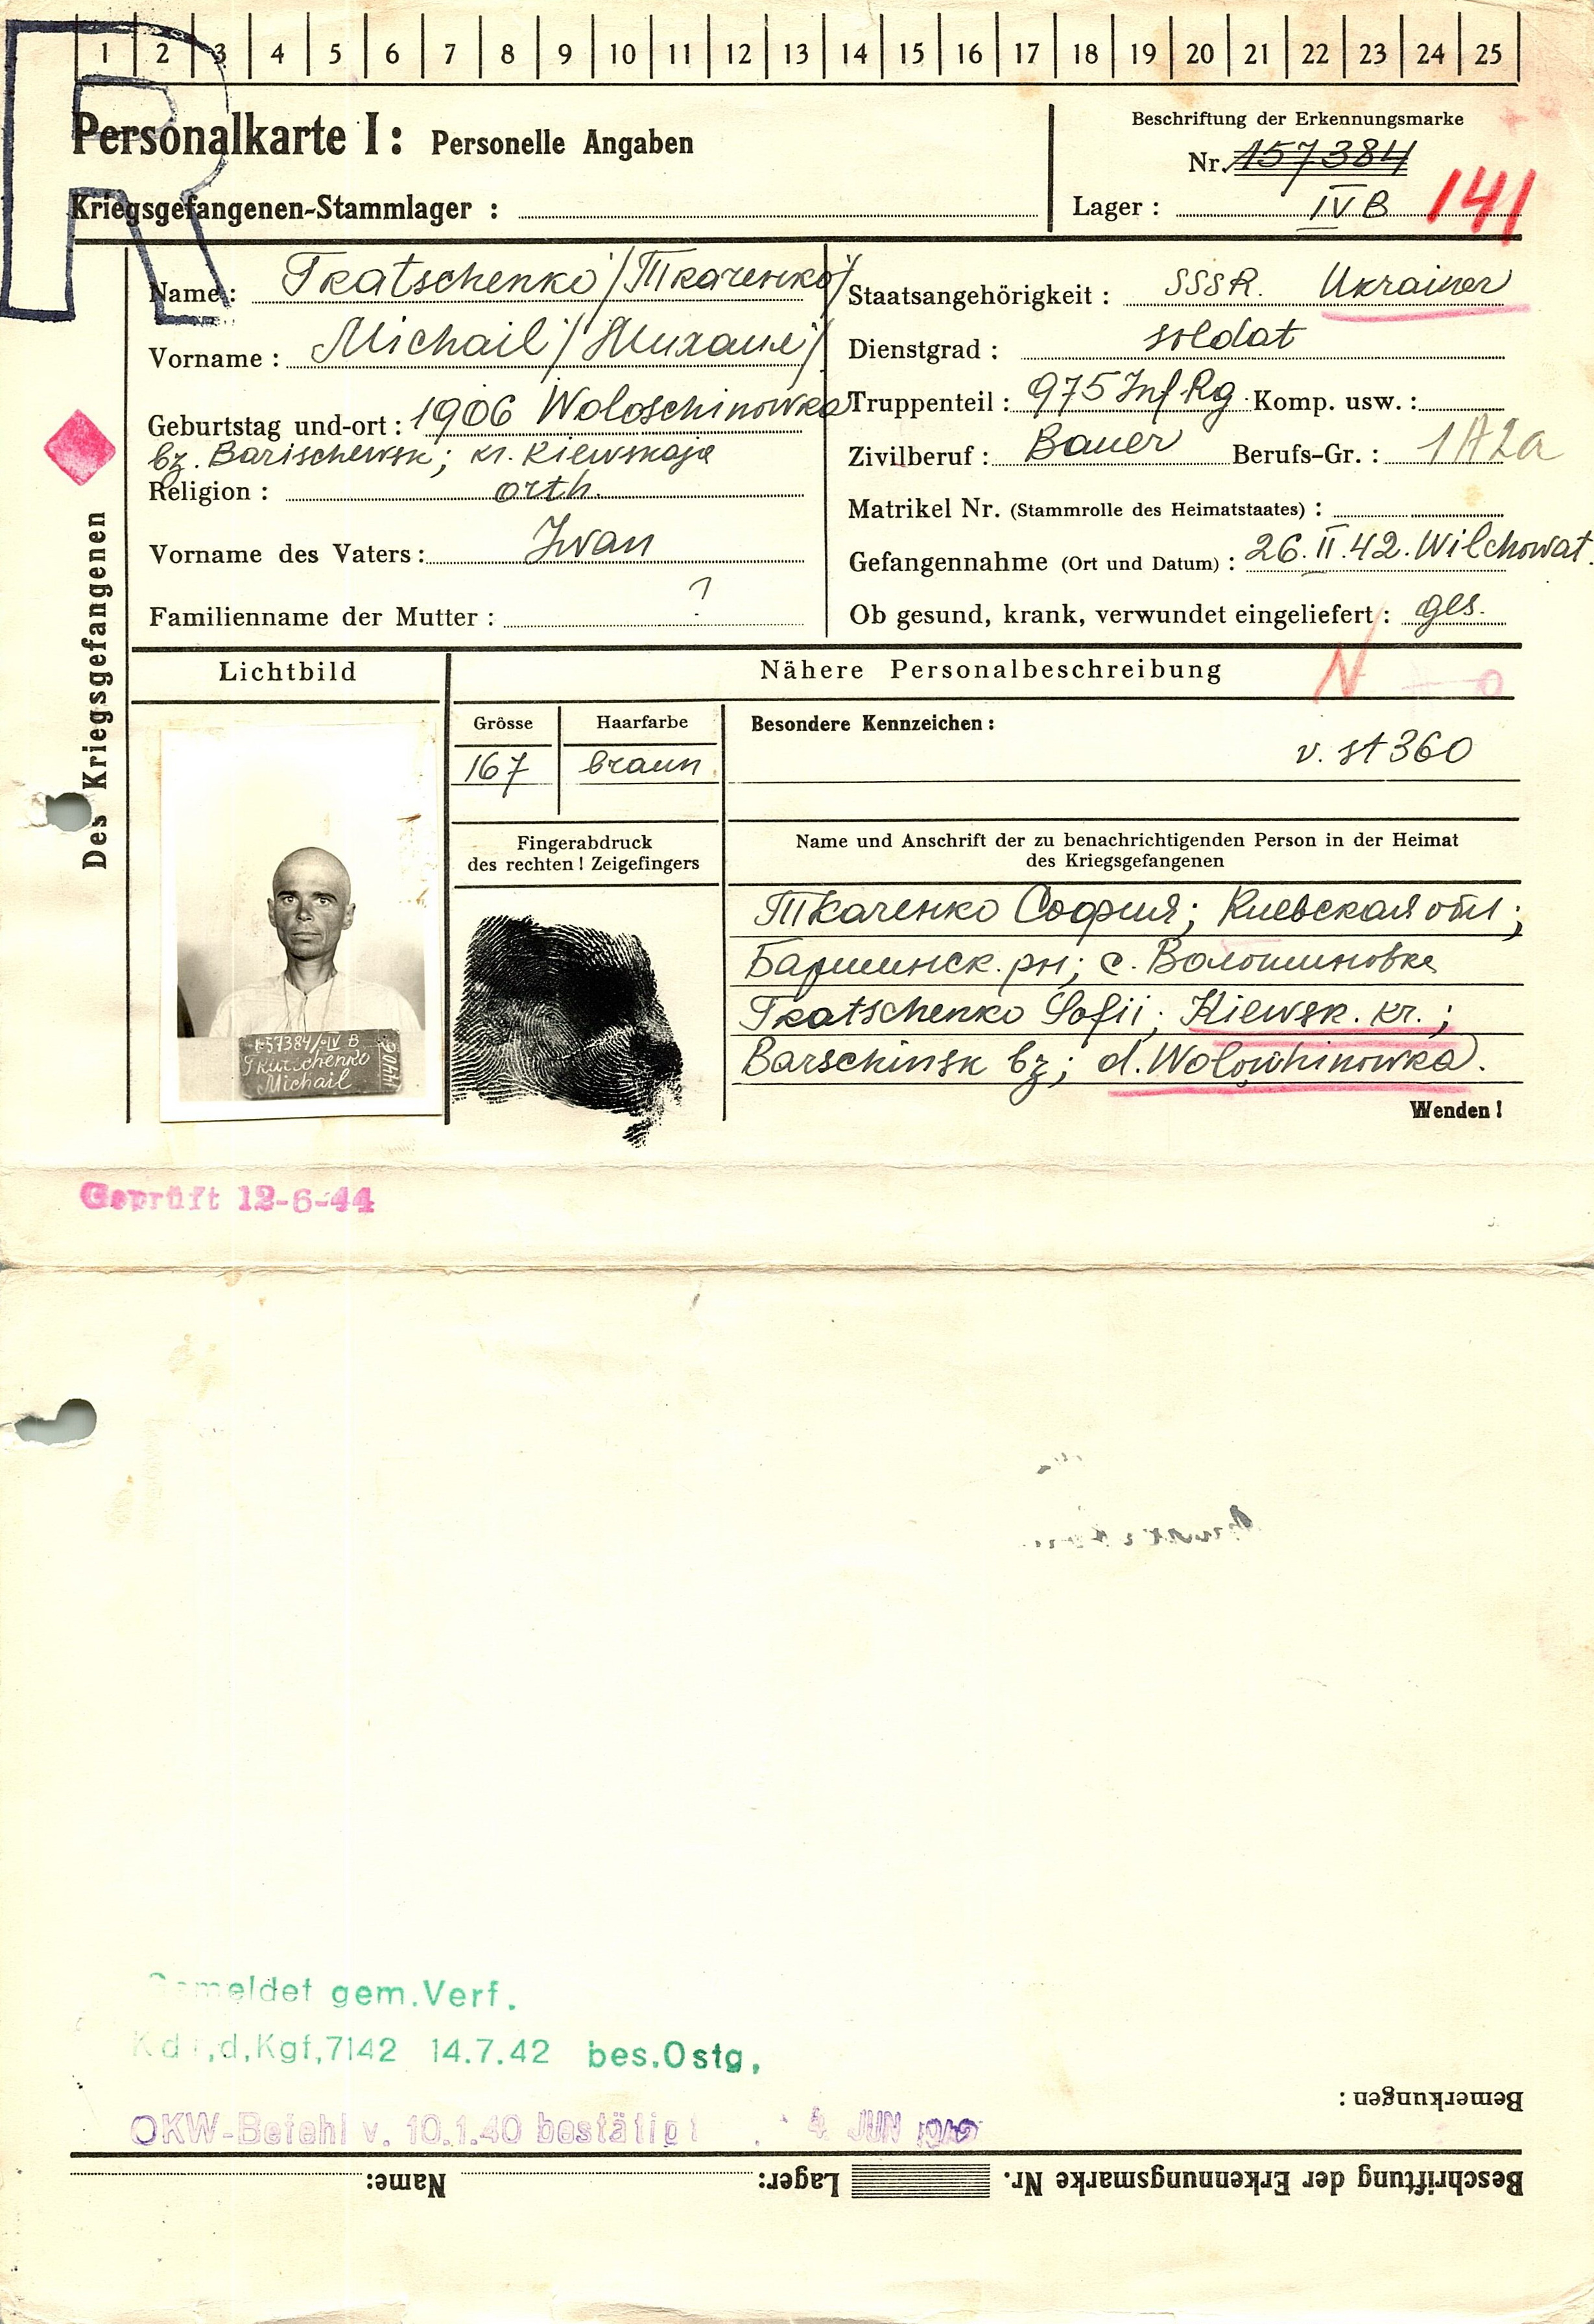 R
1 2 3 4 5 6 7 8 9 10 11 12 13 14 15 16 17 18 19 20 21 22 23 24 25
Personalkarte I: Personelle Angaben
Kriegsgefangenen-Stammlager :
Beschriftung der Erkennungsmarke
Nr. 157384
Lager : IV B 141
Des Kriegsgefangenen
Name: Tkatschenko /Ткаченко/
Vorname : Michail /Михаил/
Geburtstag und-ort : 1906 Woloschinowka
bz. Barischewsk; kr. Kiewskaja
Religion : orth.
Vorname des Vaters: Iwan
Familienname der Mutter : ?
Staatsangehörigkeit : SSSR. Ukrainer
Dienstgrad : soldat
Truppenteil : 975 Inf Rg Komp. usw. :
Zivilberuf : Bauer Berufs-Gr. : 1A2a
Matrikel Nr. (Stammrolle des Heimatstaates) :
Gefangennahme (Ort und Datum) : 26.II.42. Wilchowat.
Ob gesund, krank, verwundet eingeliefert : ges.
Lichtbild
Nähere Personalbeschreibung N
Grösse
167
Haarfarbe
braun
Besondere Kennzeichen :
v. st 360
Fingerabdruck
des rechten ! Zeigefingers
Name und Anschrift der zu benachrichtigenden Person in der Heimat
des Kriegsgefangenen
Ткаченко София; Киевская обл;
Баришинск. рн; с. Волошиновке
Tkatschenko Sofii; Kiewsk. kr.;
Barschinsk bz; d. Woloschinowka.
157384/IV B
Tkatschenko
Michail
Wenden !
Geprüft 12-6-44
Gemeldet gem.Verf.
Kdr,d,Kgf,7142 14.7.42 bes.Ostg,
OKW-Befehl v. 10.1.40 bestätigt 4. JUN
Bemerkungen :
Beschriftung der Erkennungsmarke Nr. Lager: Name: